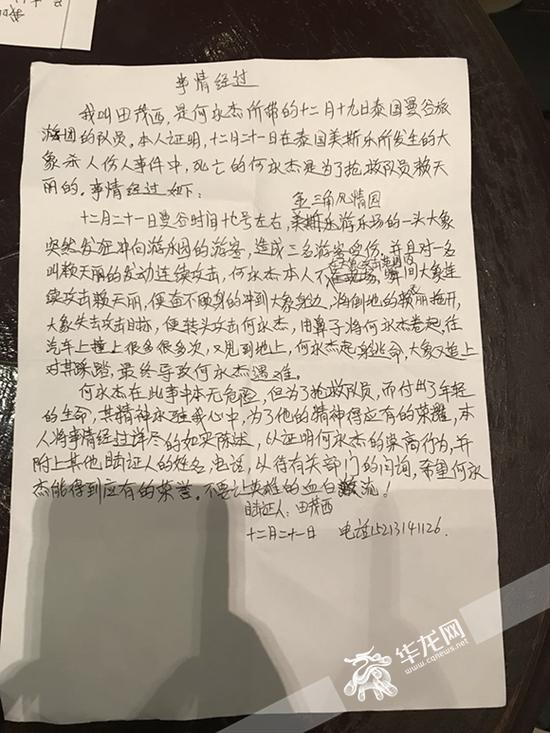 事情经过
我叫田茂西,是何永杰所带的十二月十九日泰国曼谷旅
游团的队员。本人证明,十二月二十一日在泰国美斯乐所发生的大
象杀人伤人事件中,死亡的何永杰是为了抢救队员赖天
丽的。事情经过如下:
金三角风情园
十二月二十一日曼谷时间十七号左右,美斯乐游乐场的一头大象
突然发狂冲向游乐园的游客,造成三名游客受伤,并且对一名
叫赖天丽的发动连续攻击,何永杰本人不在,瞬间大象连
续攻击赖天丽,便奋不顾身的冲到大象身边,将倒地的赖丽拖开,
大象失去攻击目标,便转头攻击何永杰,用鼻子将何永杰卷起,往
汽车上撞上很多很多次,又甩到地上,何永杰起身逃命,大象又追上
对其踩踏,最终导致何永杰遇难。
何永杰在此事中本无危险,但为了抢救队员,而付出了年轻
的生命,其精神永驻我心中,为了他的精神得应有的荣耀,本
人将事情经过详尽的如实陈述,以证明何永杰的崇高行为,并
附上其他目睹证人的姓名,电话,以待有关部门的问询,希望何永
杰能得到应有的荣誉。不要让英雄的血白流!
目睹证人:田茂西
十二月二十一日 电话15213141126.
华龙网
www.cqnews.net